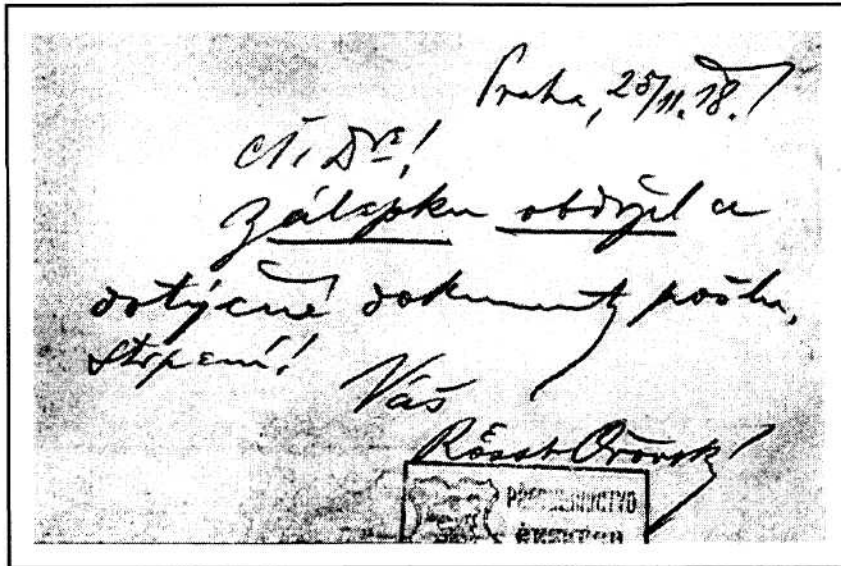 Praha, 25/11. 18.
Ct. Dre!
Zálepku obdržel a
dotyčné dokumenty pošlu,
strpení!
Váš
Rössl-Ořovský